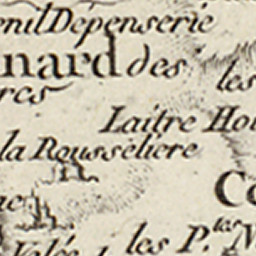 enil Dépenserie
nard des les
res
Laitre Hou
la Rousseliere
Co
ne
les P.tes N
Valée